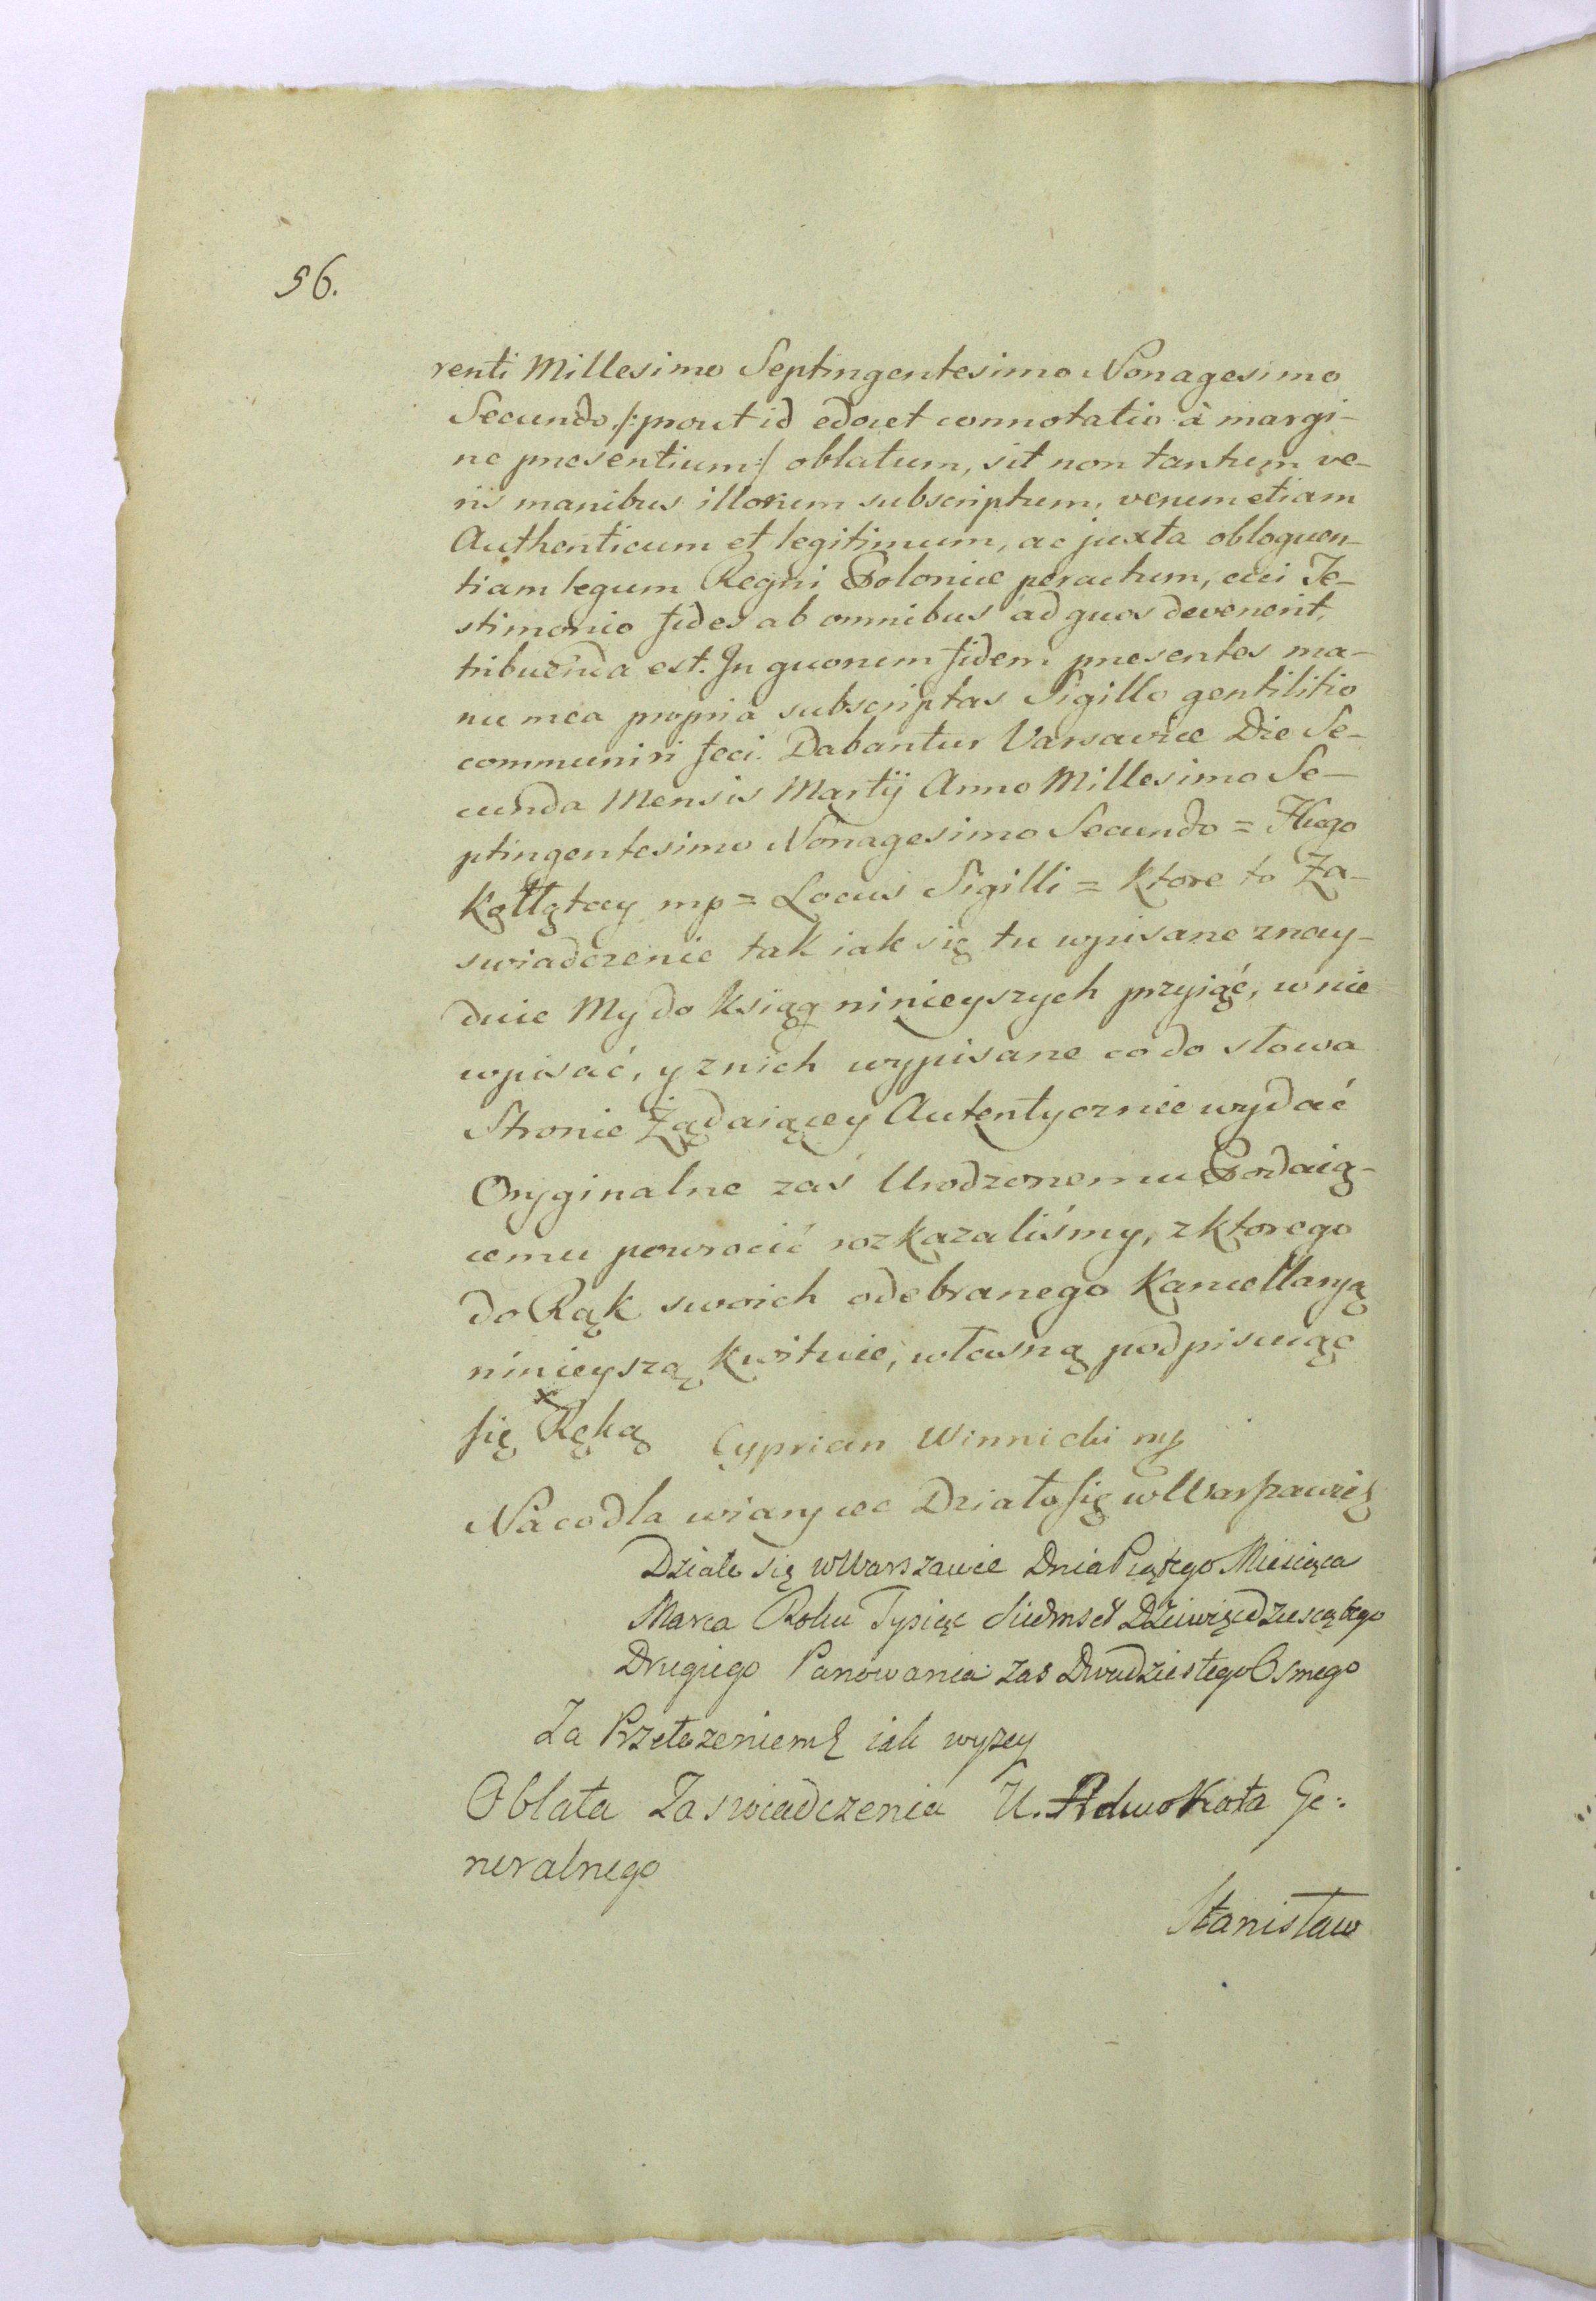 56.
renti Millesimo Septingentesimo Nonagesimo
Secundo /: prout id edocet connotatio à margi-
ne presentium :/ oblatum, sit non tantum ve-
ris manibus illorum subscriptum, verum etiam
Authenticum et legitimum, ac juxta obloquen-
tiam legum Regni Poloniæ peractum, cui Te-
stimonio fides ab omnibus ad quos devenerit,
tribuenda est. In quorum fidem presentes ma-
nu mea propria subscriptas Sigillo gentilitio
communiri feci. Dabantur Varsaviæ Die Se-
cunda Mensis Martij Anno Millesimo Se-
ptingentesimo Nonagesimo Secundo = Hugo
Kołłątay mp = Locus Sigilli = Ktore to Za-
swiadczenie tak iak się tu wpisane znay-
duie My do Ksiąg ninieyszych przyiąć, w nie
wpisać, y z nich wypisane co do słowa
Stronie Żądaiącey Autentycznie wydać
Oryginalne zaś Urodzonemu Podaią-
cemu powrocić rozkazaliśmy, z ktorego
do Rąk swoich odebranego Kancellaryą
ninieyszą kwituie, własną podpisuiąc
się Ręką Cyprian Winnicki mp
Na co dla wiary etc Działo się w Warszawie
Działo się w Warszawie Dnia Piątego Miesiąca
Marca Roku Tysiąc Siedmset Dziewięćdziesiątego
Drugiego Panowania zas Dwudziestego Osmego
Za Przełozeniem iak wyzey
Oblata Zaswiadczenia U. Adwokata Ge:
neralnego
Stanisław